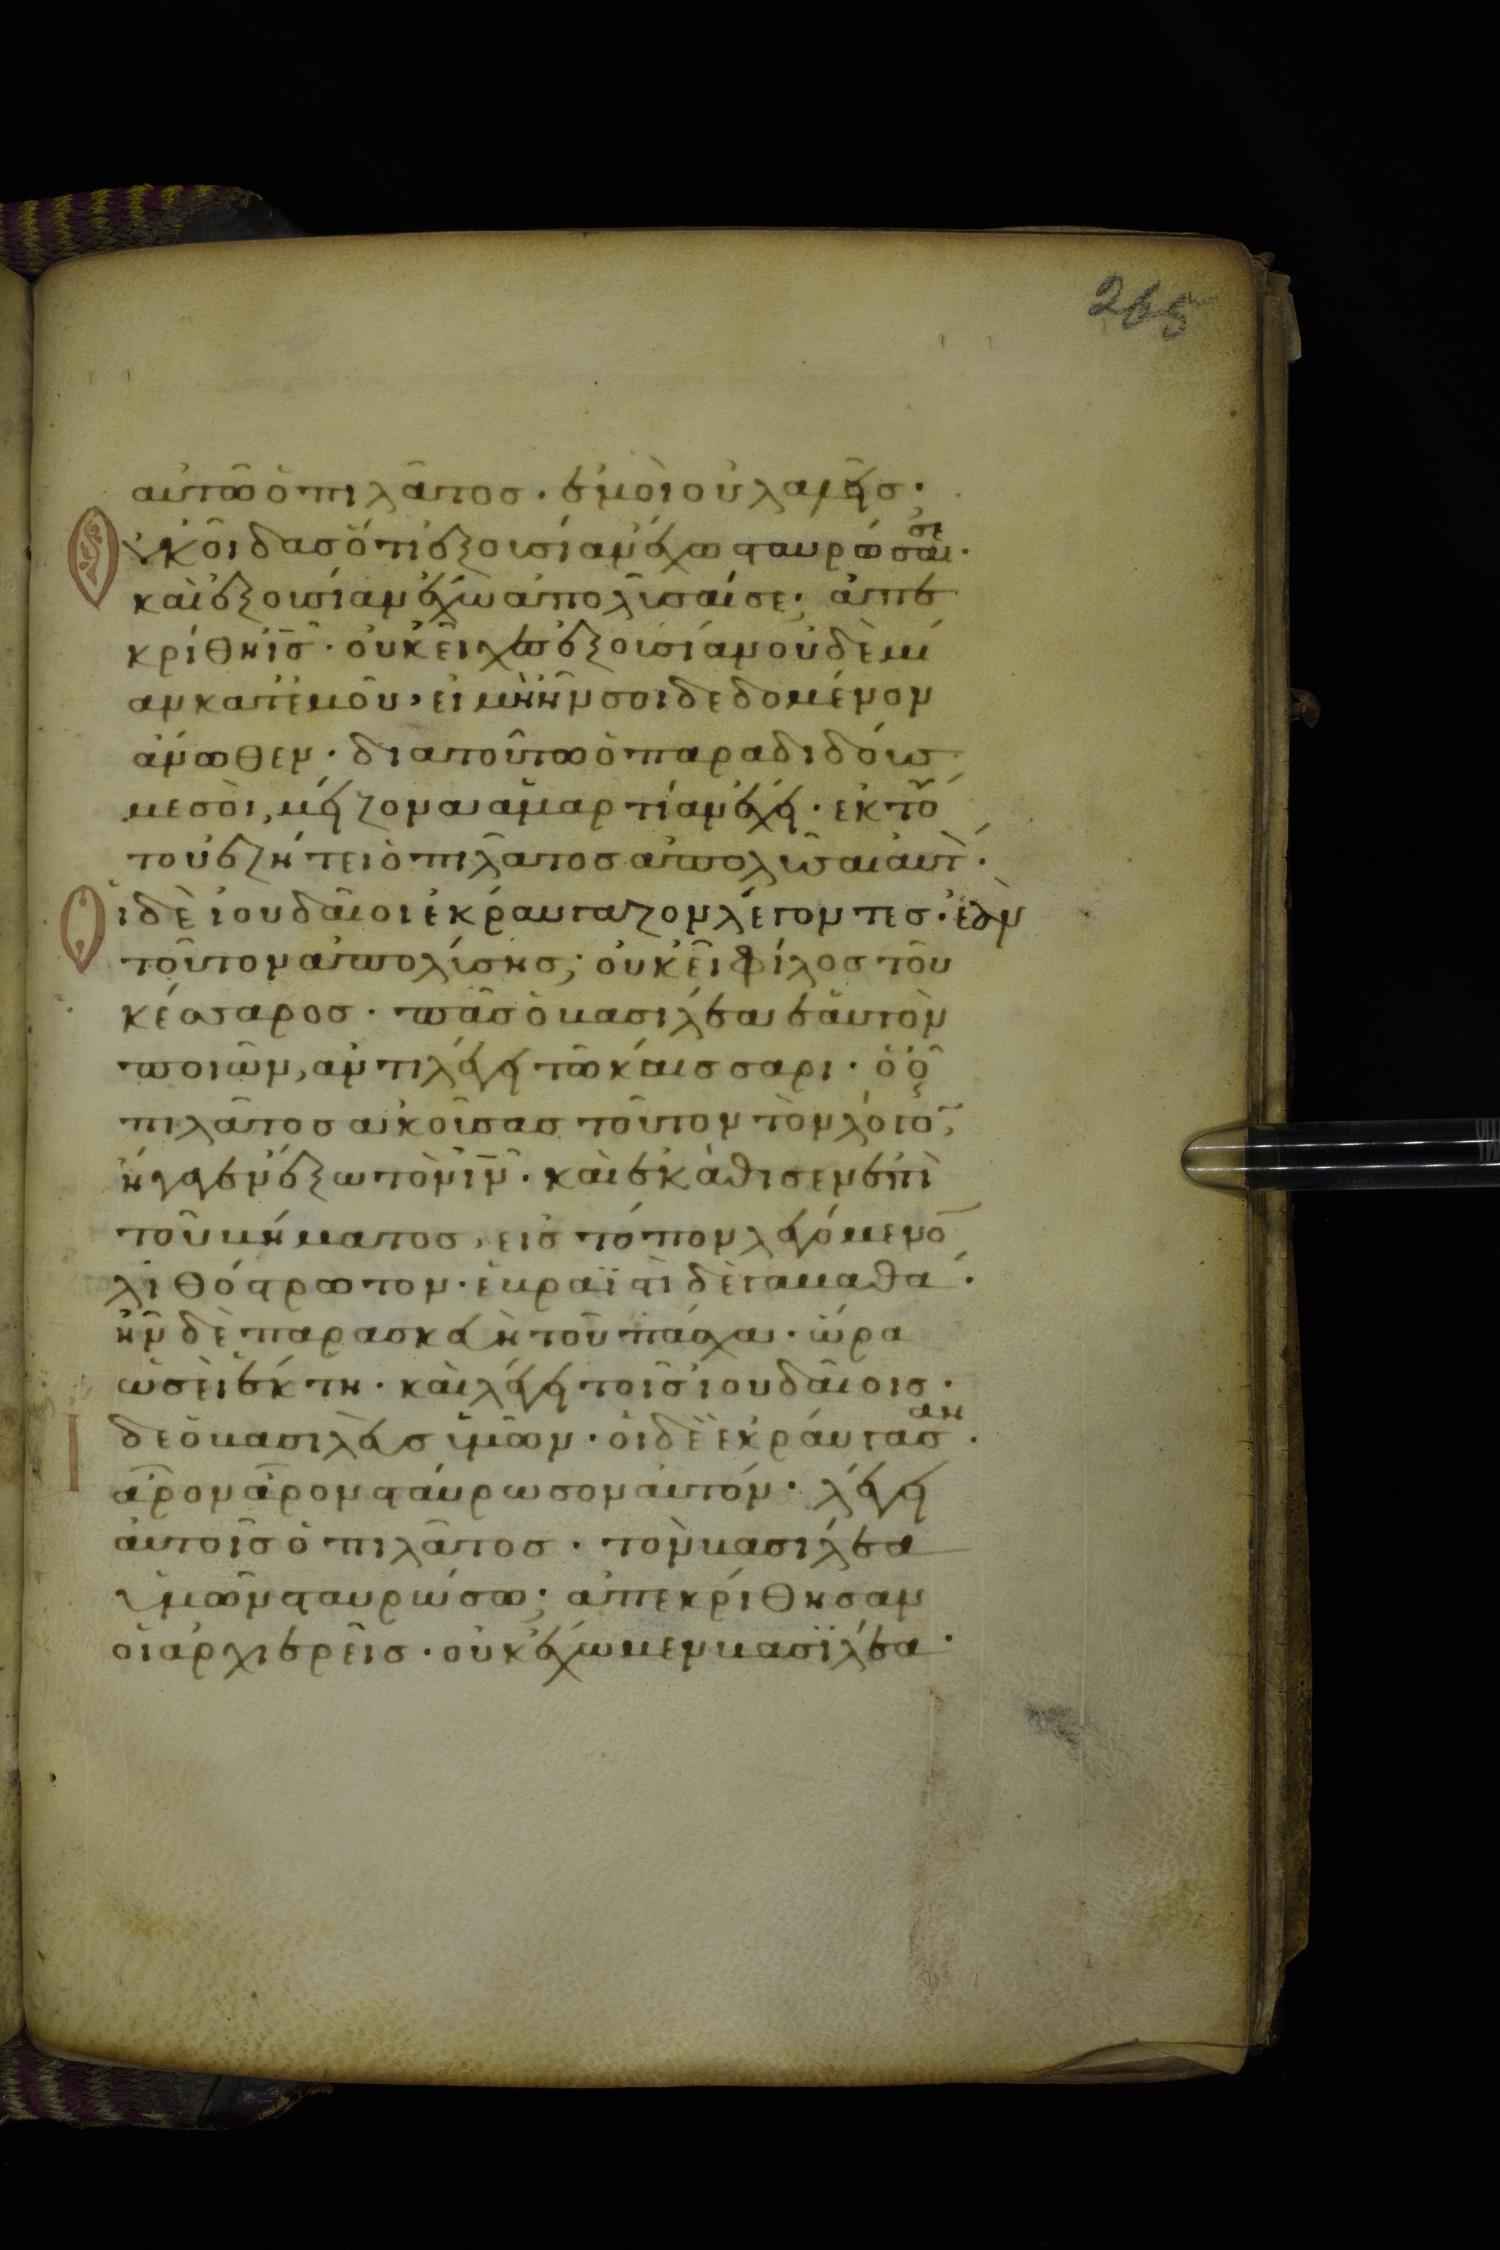 αὐτῶ ὁ πιλᾶτος · ἐμοὶ οὐ λαλῆς ·
Οὐκ οἶδας ὅτι ἐξουσίαν ἔχω σταυρῶσαί σε ·
καὶ ἐξουσίαν ἔχω ἀπολῦσαί σε; ἀπε
κρίθη ις̅ · οὐκ εἶχες ἐξουσίαν οὐδὲ μί
αν κατ' ἐμοῦ, εἰ μὴ ἦν σοι δεδομένον
ἄνωθεν · δια τοῦτω ὁ παραδιδούς
με σοὶ, μείζονα ἁμαρτίαν ἔχει · ἐκ τού
του ἐζήτει ὁ πιλᾶτος ἀπολῦσαι αὐτ ·
Οἱ δὲ ἰουδαῖοι ἐκράυγαζον λέγοντες · ἐὰν
τοῦτον ἀπολύσης; οὐκ εἶ φίλος τοῦ
κέσαρος · πᾶς ὁ βασιλέα ἑαυτὸν
ποιῶν, ἀντιλέγει τῶ καίσσαρι · ὁ οὖ
πιλᾶτος ἀκοῦσας τοῦτον τὸν λόγο̅,
ἤγαγεν ἔξω τὸν ιν̅ · καὶ ἐκάθισεν ἐπὶ
τοῦ βήματος, εἰς τόπον λεγόμενο̅
λιθόστρωτον · ἑβραϊστὶ δὲ γαβαθα ·
ἦν δὲ παρασκευὴ τοῦ πάσχα · ὥρα
ὡσεὶ ἕκτη · καὶ λέγει τοῖς ἰουδαίοις ·
Ἴδε ὁ βασιλεὺς ὑμῶν · οἱ δὲ ἐκραύγασαν ·
ἆρον ἆρον σταύρωσον αὐτόν · λέγει
αὐτοῖς ὁ πιλᾶτος · τὸν βασιλέα
ὑμῶν σταυρώσω; ἀπεκρίθησαν
οἱ ἀρχιερεῖς · οὐκ ἔχωμεν βασϊλέα ·
265